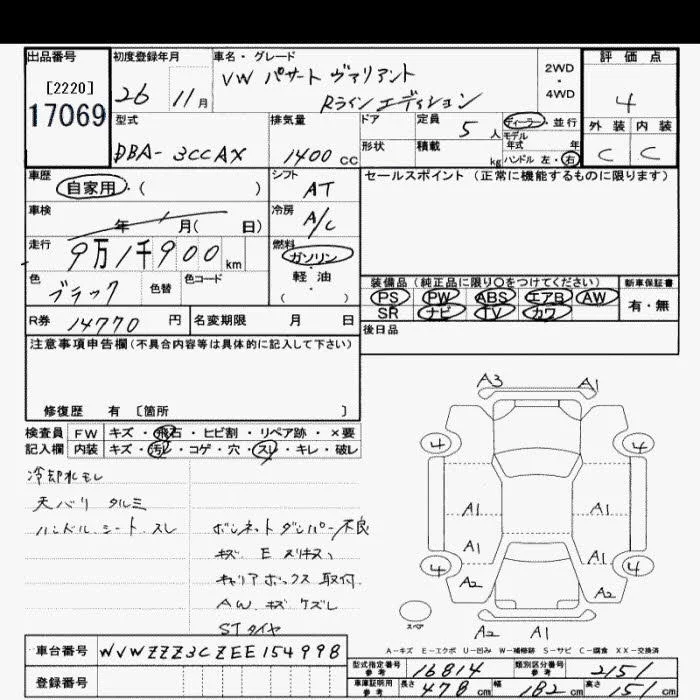 出品番号 [2220] 17069
初度登録年月 26 11月
車名・グレード VW パサート ヴァリアント Rラインエディション
2WD・4WD
評価点 4
外装 C 内装 C
型式 DBA-3CCAX
排気量 1400cc
ドア 形状
定員 5人 積載 kg
ディーラー・並行
モデル年式 年
ハンドル 左・右
車歴 自家用・( )
シフト AT
セールスポイント (正常に機能するものに限ります)
車検 年 月( 日)
冷房 A/C
走行 9万1千900km
燃料 ガソリン・軽油 ( )
色 ブラック 色替 色コード
装備品 (純正品に限り○をつけてください)
PS PW ABS エアB AW
SR ナビ TV カワ
新車保証書 有・無
R券 14770円 名変期限 月 日
後日品
注意事項申告欄(不具合内容等は具体的に記入して下さい)
修復歴 有 〔箇所 〕
検査員記入欄
FW キズ・飛石・ヒビ割・リペア跡・×要
内装 キズ・汚れ・コゲ・穴・スレ・キレ・破レ
冷却水モレ
天バリ タルミ
ハンドル、シート、スレ
ボンネットダンパー不良
キズ E スリキズ、
キャリアボックス取付
AW、キズ ケズレ
STタイヤ
A3 A1
4 4
A1 A1
A1 A1
4 4
A2 A2
スペア
A2 A1
A-キズ E-エクボ U-凹み W-補修跡 S-サビ C-腐食 XX-交換済
車台番号 WVWZZZ3CZEE154998
登録番号
型式指定番号 参考 16814 類別区分番号 参考 2151
車庫証明用 参考 長さ 478cm 幅 182cm 高さ 151cm